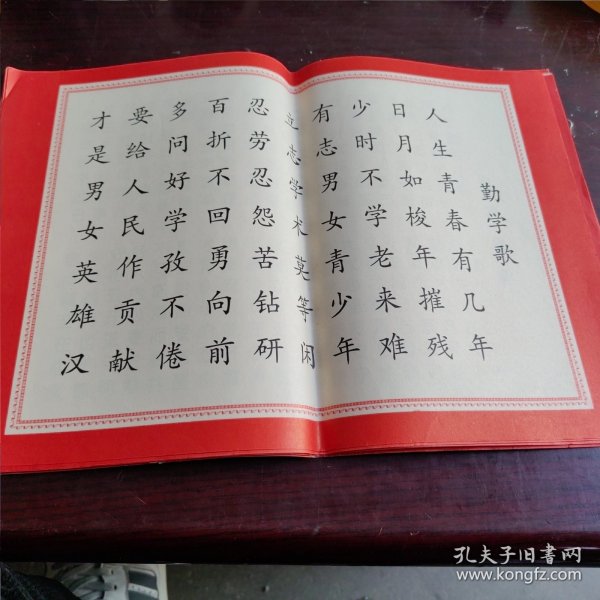 勤学歌
人生青春有几年
日月如梭年摧残
少时不学老来难
有志男女青少年
立志学术莫等闲
忍劳忍怨苦钻研
百折不回勇向前
多问好学孜不倦
要给人民作贡献
才是男女英雄汉
孔夫子旧書网
www.kongfz.com